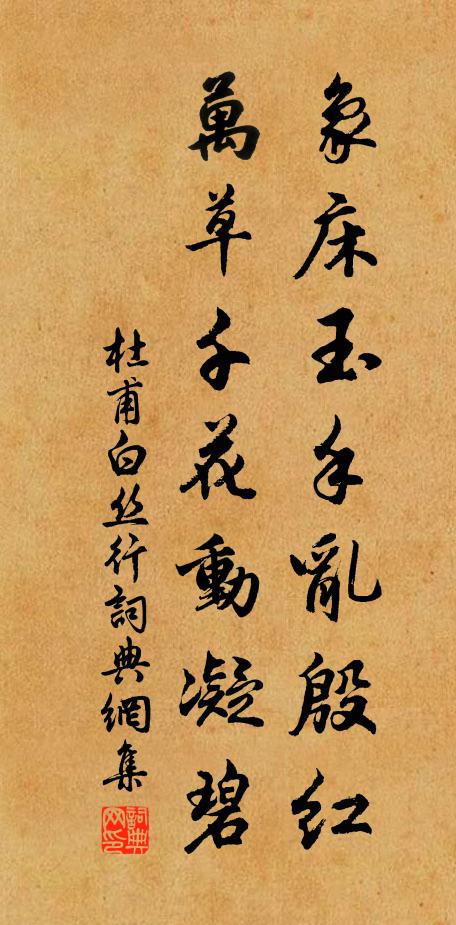 象床玉手亂殷红
萬草千花動凝碧
杜甫白丝行詞典網集
詞典网印